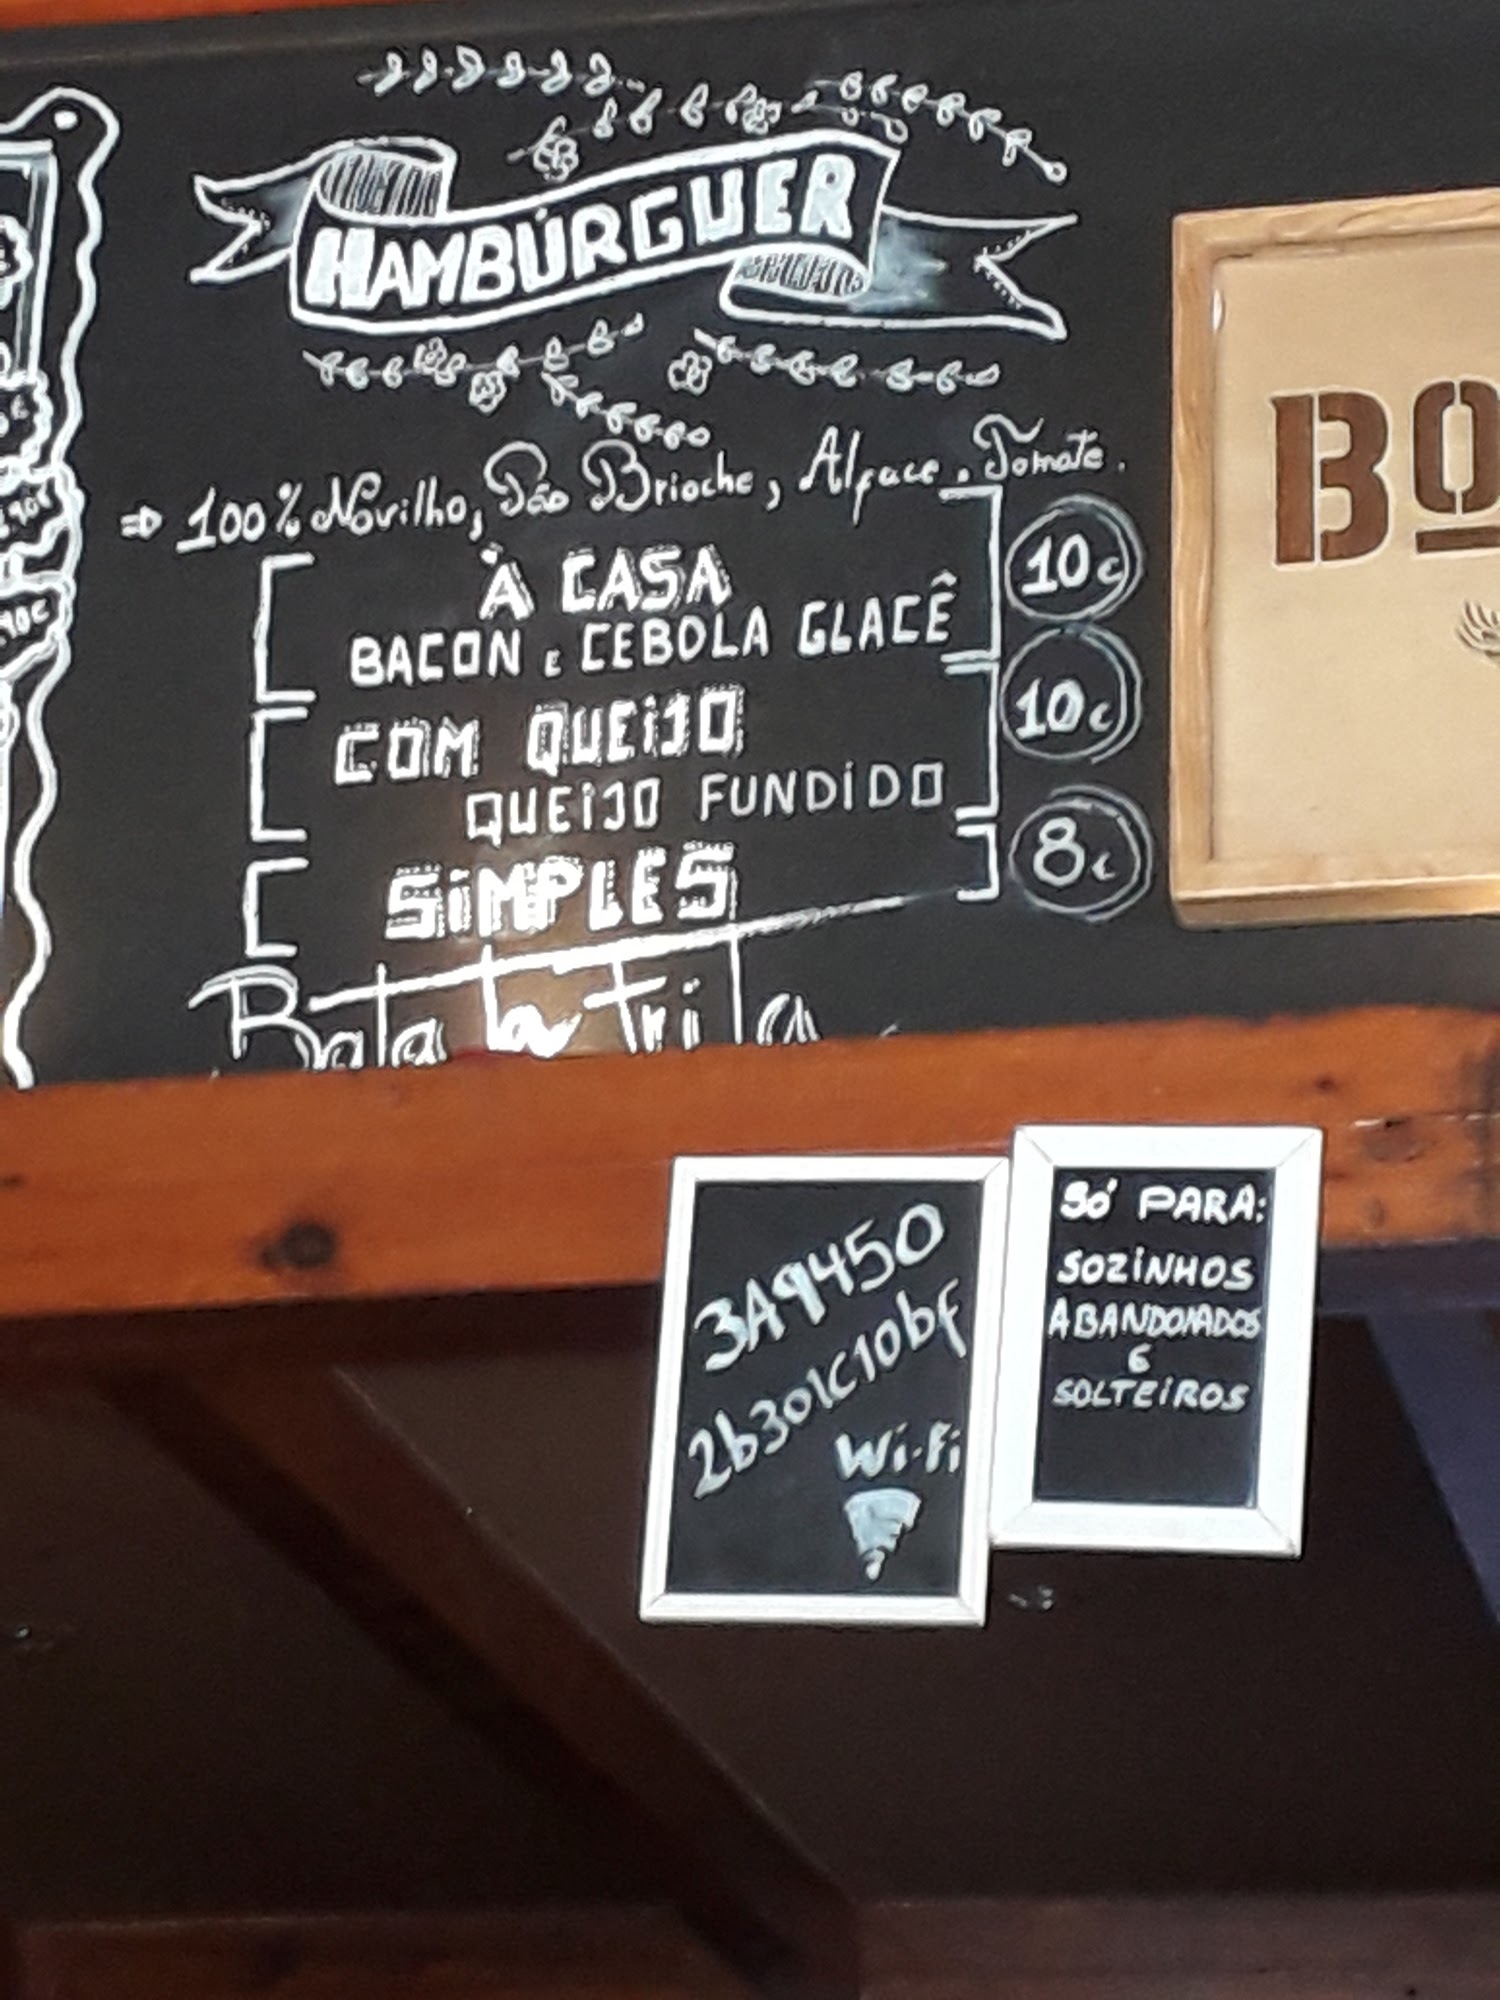 HAMBÚRGUER
⇒ 100% Novilho, Pão Brioche, Alface, Tomate.
À CASA
10€
BACON E CEBOLA GLACÊ
COM QUEIJO
10€
QUEIJO FUNDIDO
SIMPLES
8€
Batata Frita
BO
3A9450
2b301C10bf
Wi-Fi
SÓ PARA:
SOZINHOS
ABANDONADOS
E
SOLTEIROS